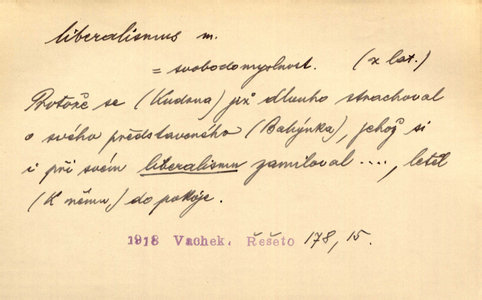 liberalismus m.
= svobodomyslnost. (z lat.)
Protože se (Kudrna) již dlouho strachoval
o svého představeného (Bahýnka), jehož si
i při svém liberalismu zamiloval ...., letěl
(k němu) do pokoje.
1918 Vachek. Řešeto 178, 15.